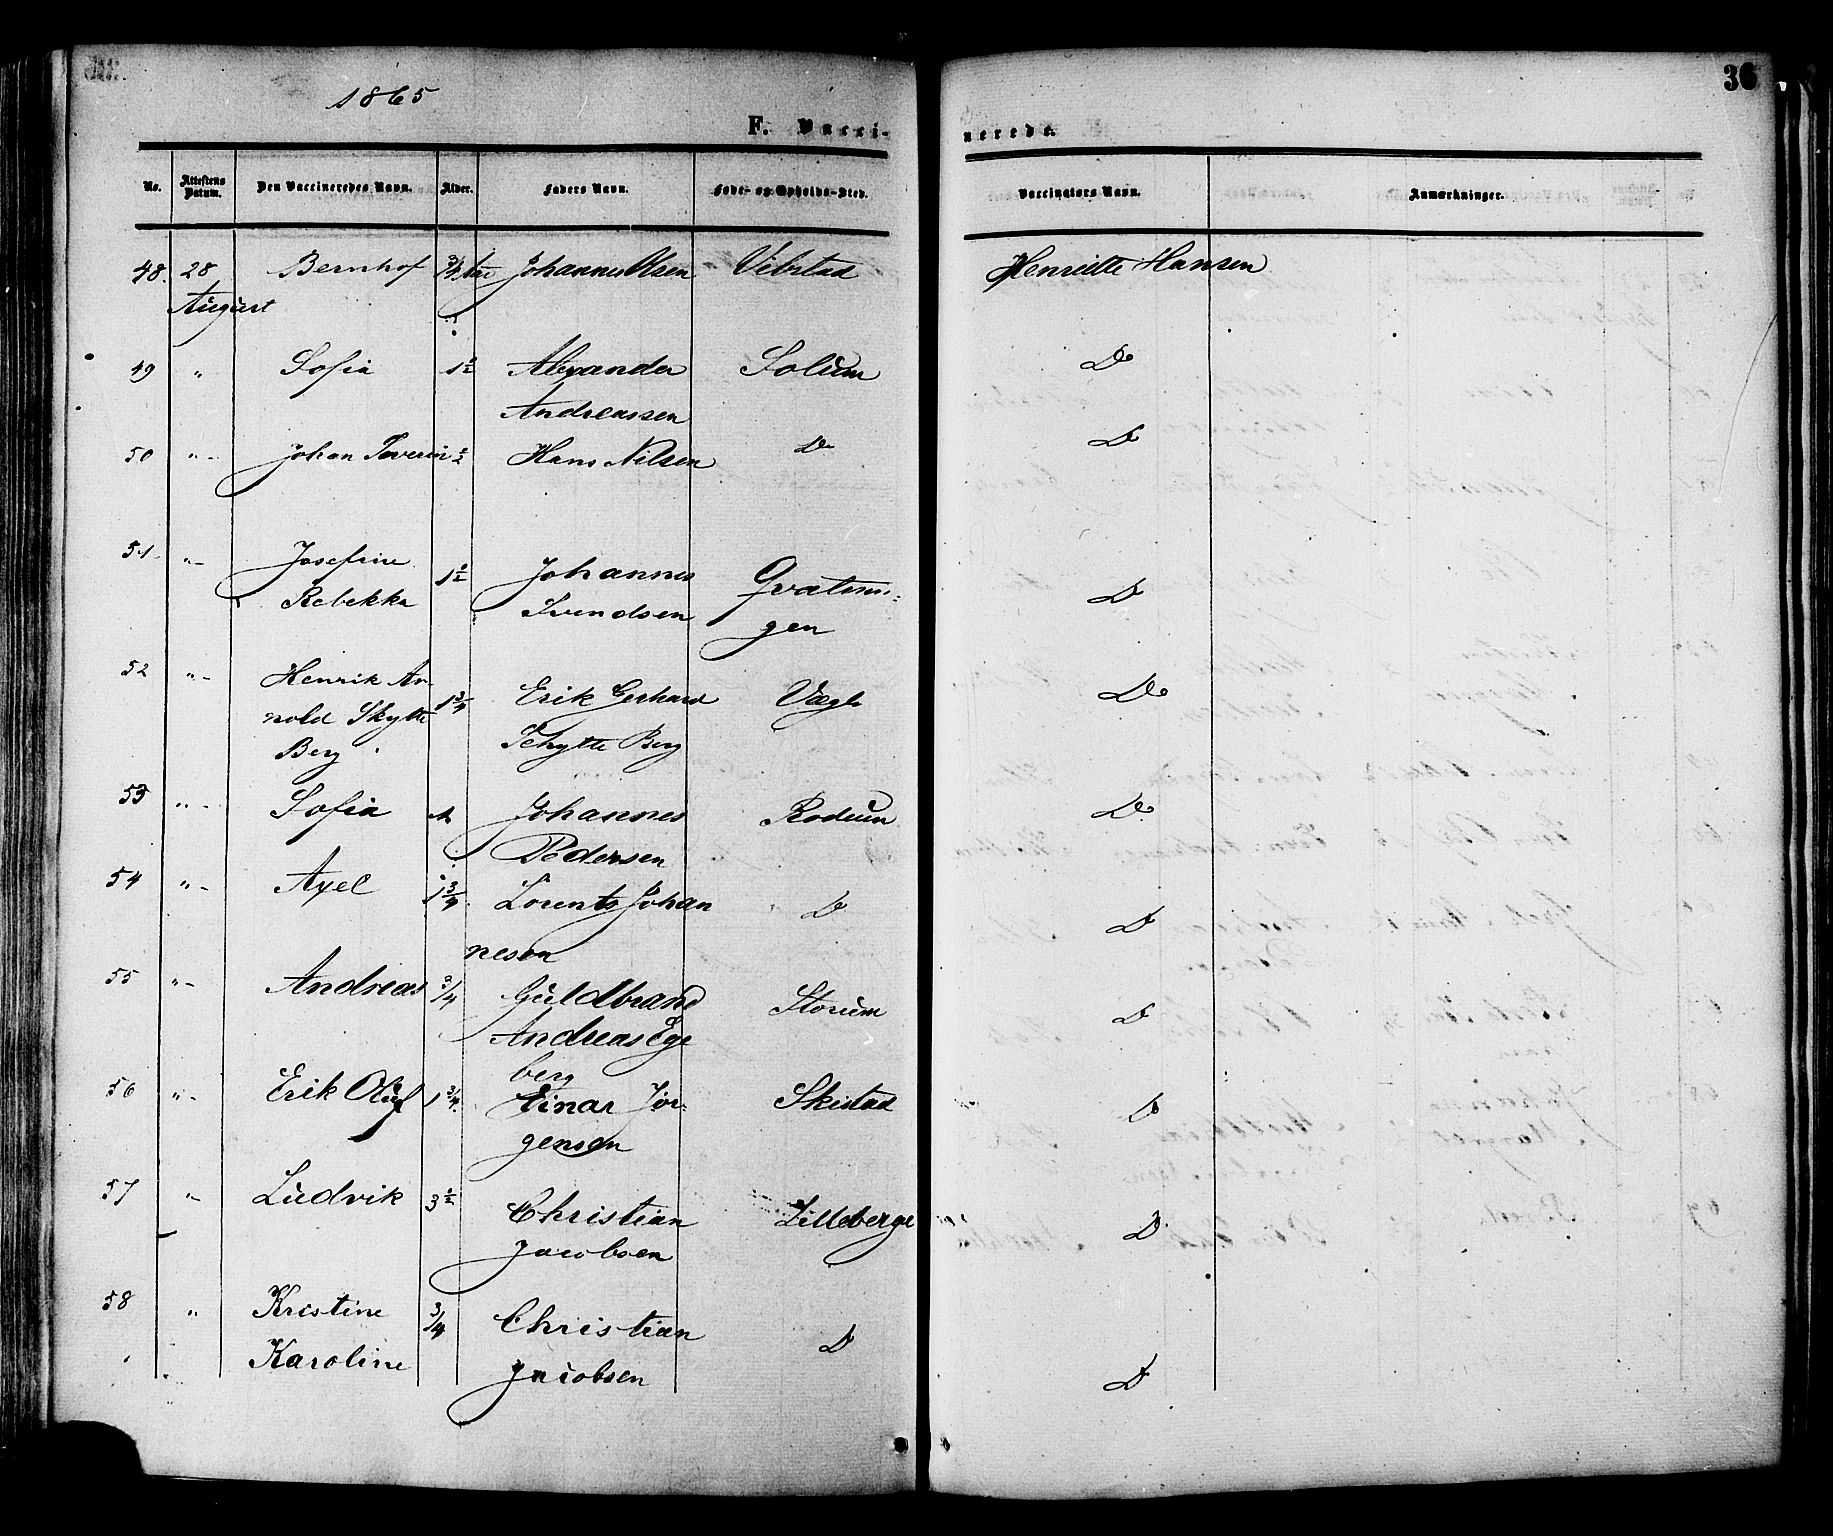 36
1865
F. Vaccinerede.
No. Attestens Datum. Den Vaccineredes Navn. Alder. Faders Navn. Føde- og Opholds-Sted. Vaccinators Navn. Anmærkninger.
48. 28 Bernhof 3/4 Johannes Olsen Vibstad Henriette Hansen
August
49 " Sofia 1½ Alexander Solum Do
Andreassen
50 " Johan Severin ½ Hans Nilsen Do Do
51 " Josefine 1½ Johannes
Rebekka Svendsen gen D
52 " Henrik Ar- 1¾ Erik Gerhard Do
nold Skytte Schytte Berg
Berg
53 " Sofia 1 Johannes Rodum Do
Pedersen
54 " Axel 1¾ Lorents Johan D D
nesen
55 " Andreas 3/4 Guldbrand Storum D
Andreas Ege
berg
56 " Erik Oluf 1¾ Einar Jør- Skistad D
gensen
57 " Ludvik 3½ Christian Lilleberge D
Jacobsen
58 " Kristine 3/4 Christian D
Karoline Jacobsen D